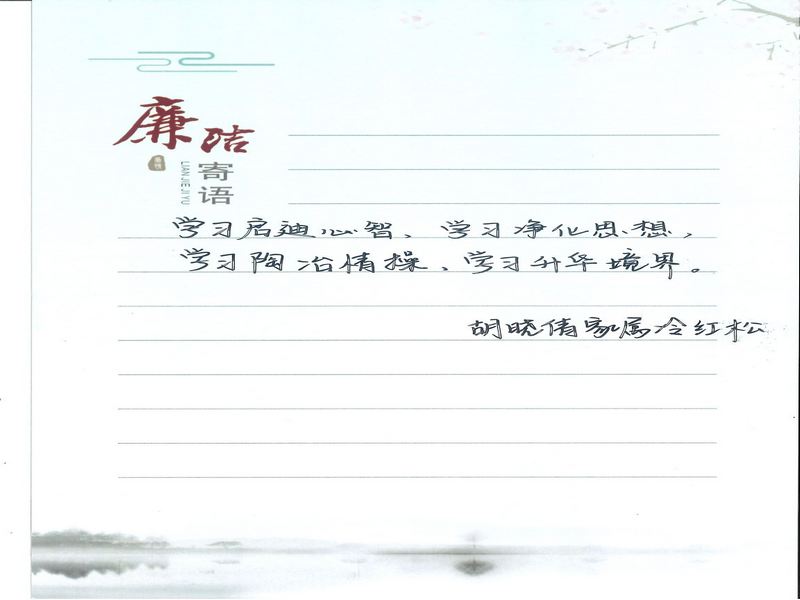 廉洁
寄语
LIAN JIE JI YU
学习启迪心智、学习净化思想，
学习陶冶情操、学习升华境界。
胡晓倩家属冷红松